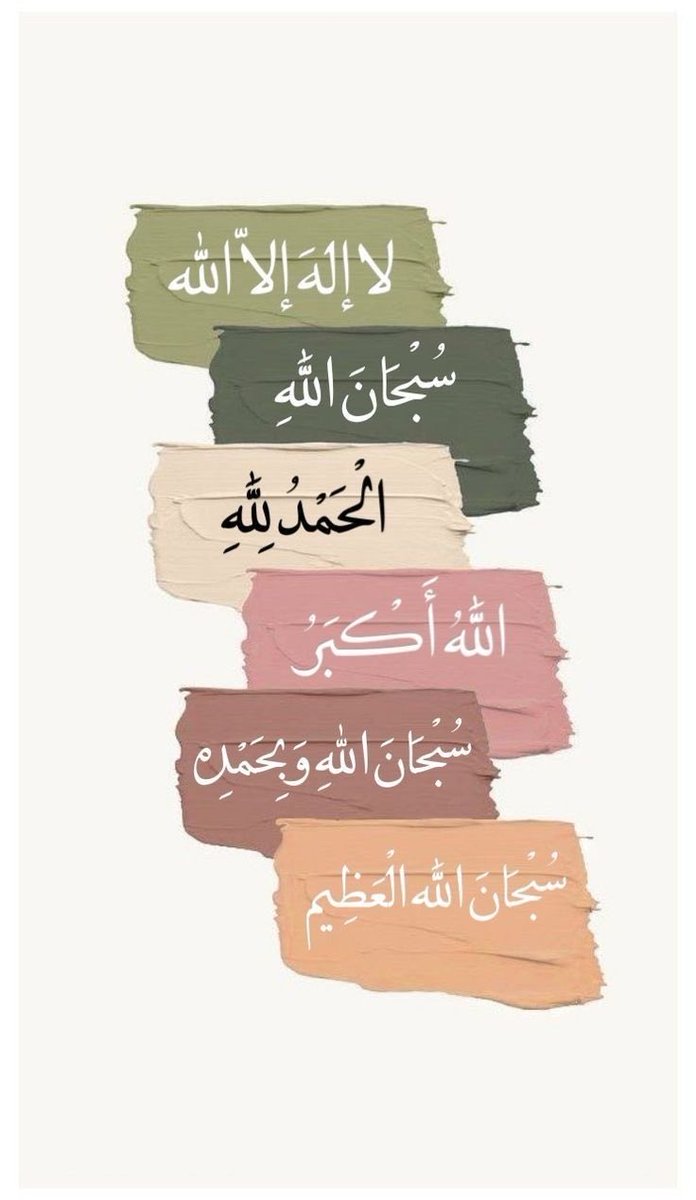 لا إلهَ إلاّ الله
سُبْحَانَ اللهِ
الْحَمْدُ لِلّٰهِ
اللهُ أَكْبَرُ
سُبْحَانَ اللهِ وَبِحَمْدِه
سُبْحَانَ الله الْعَظِيم